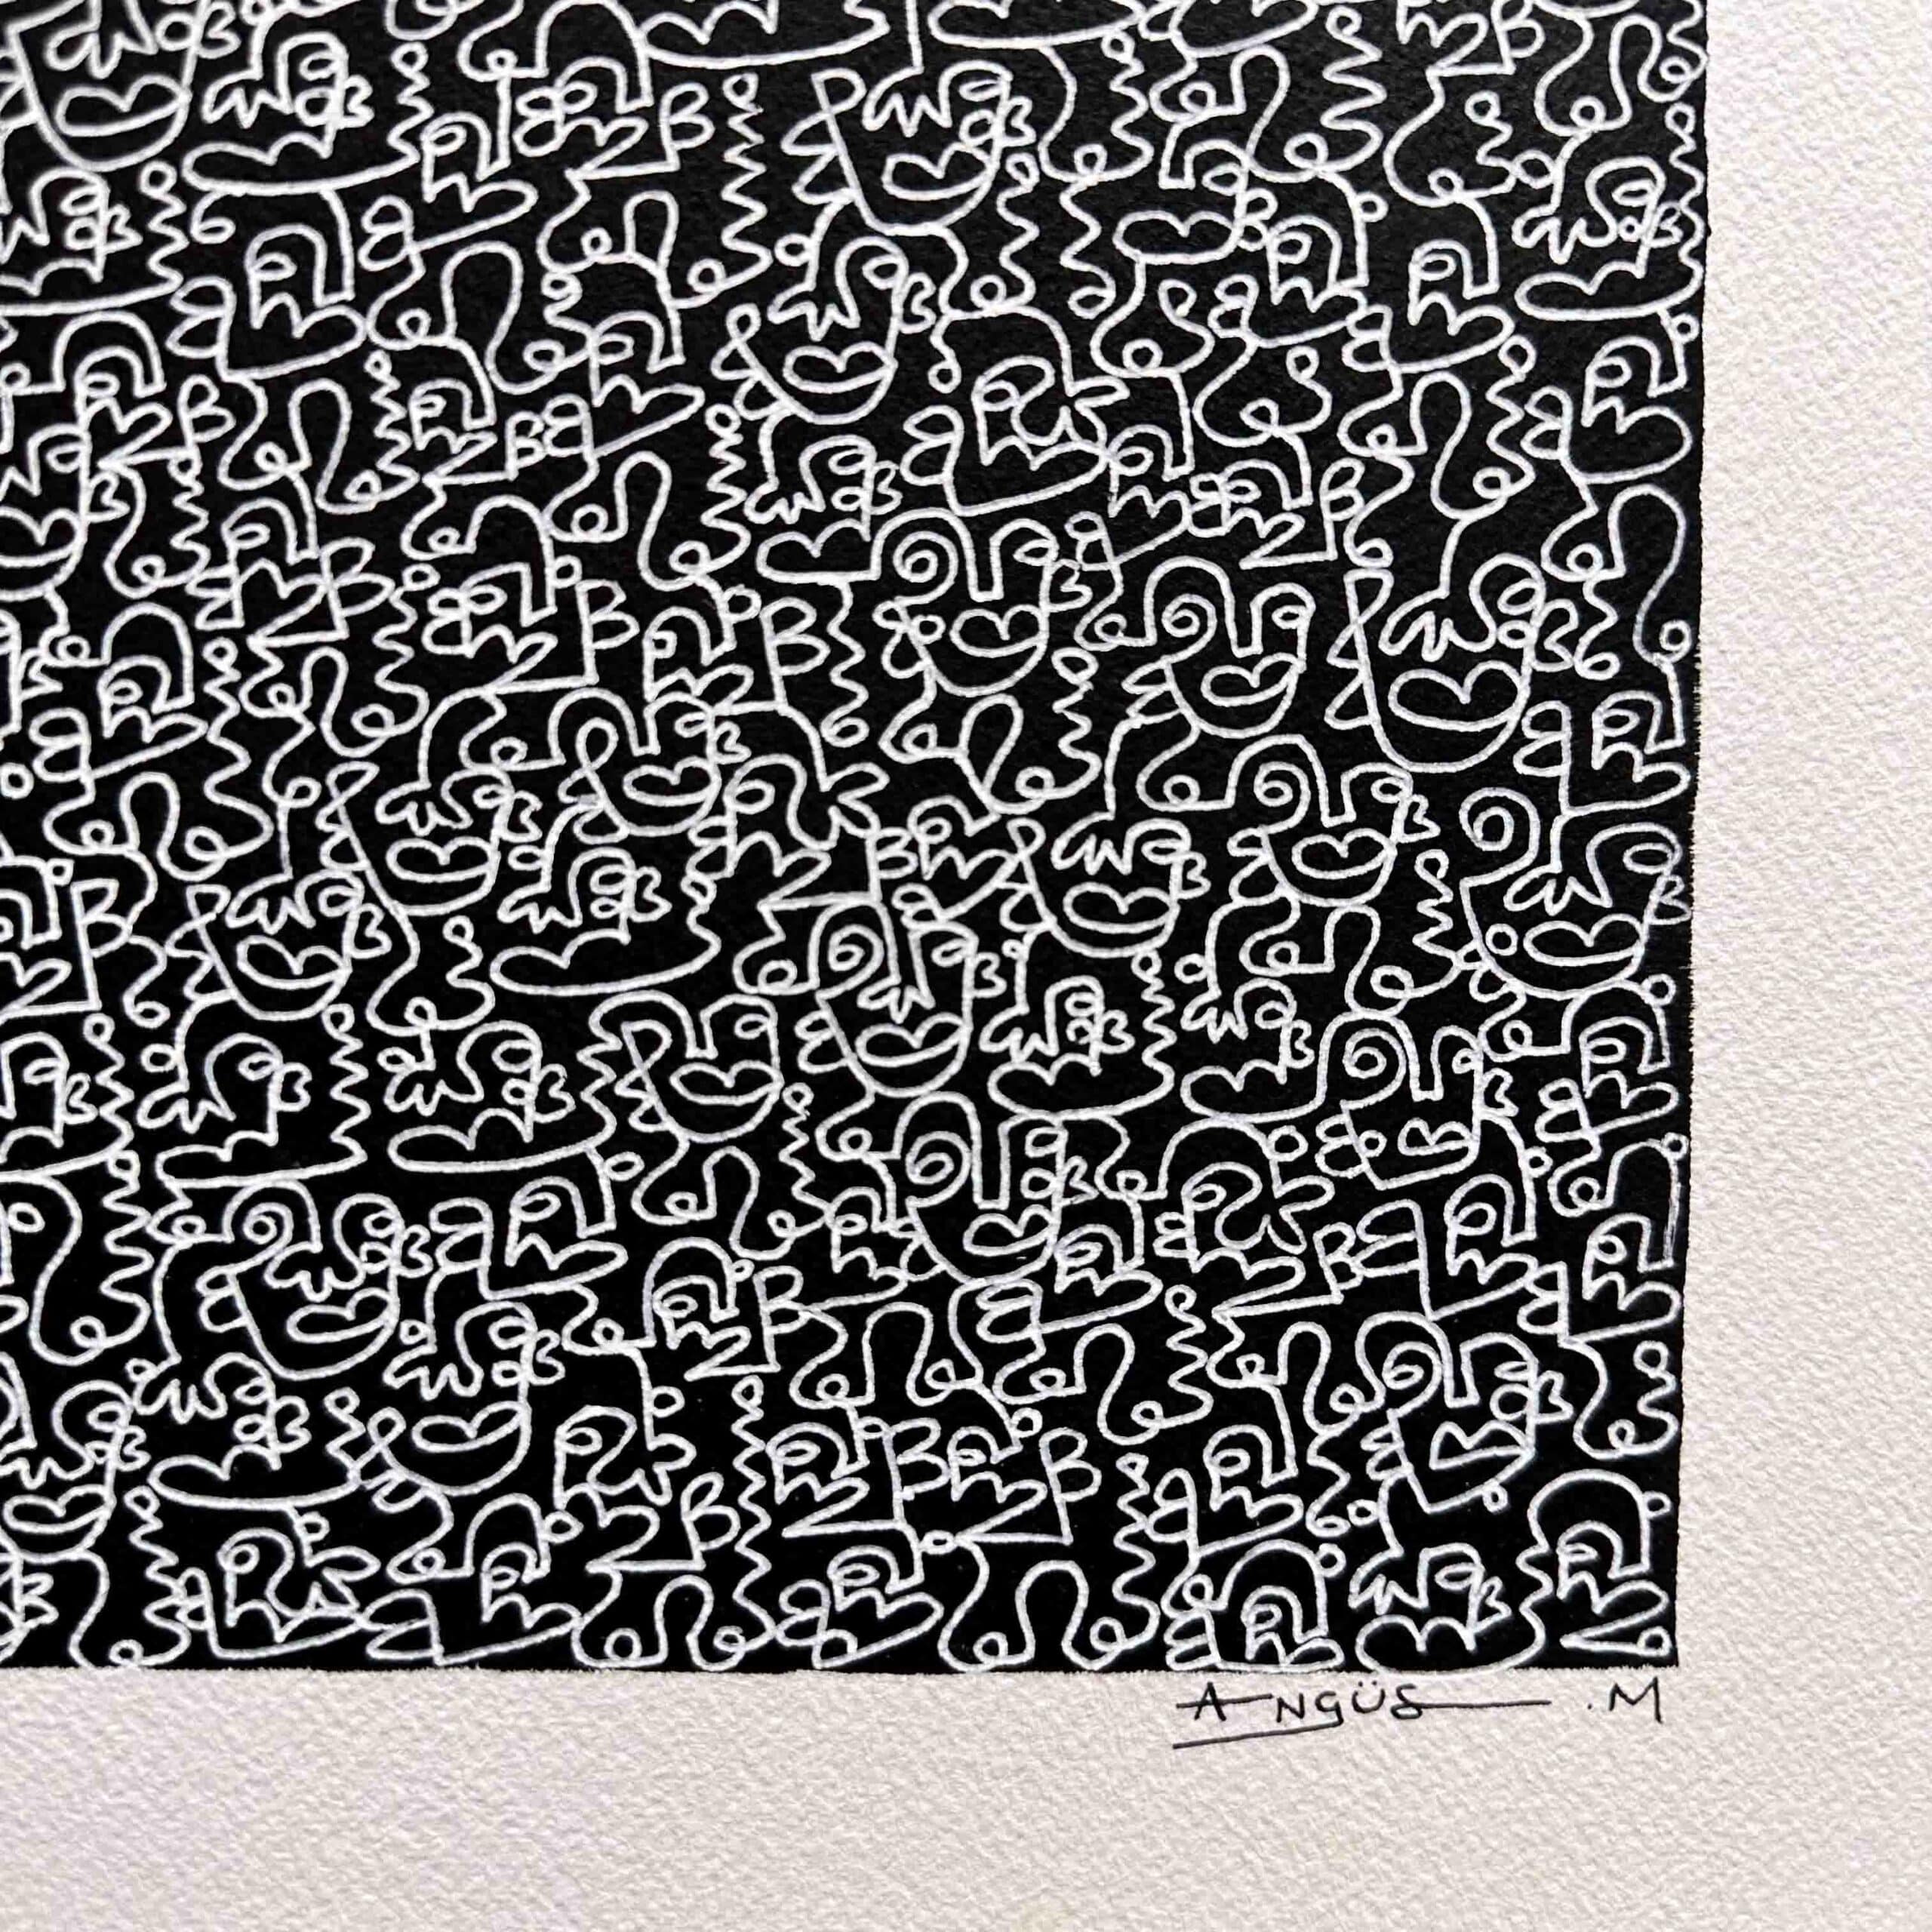 ANGÜS .M